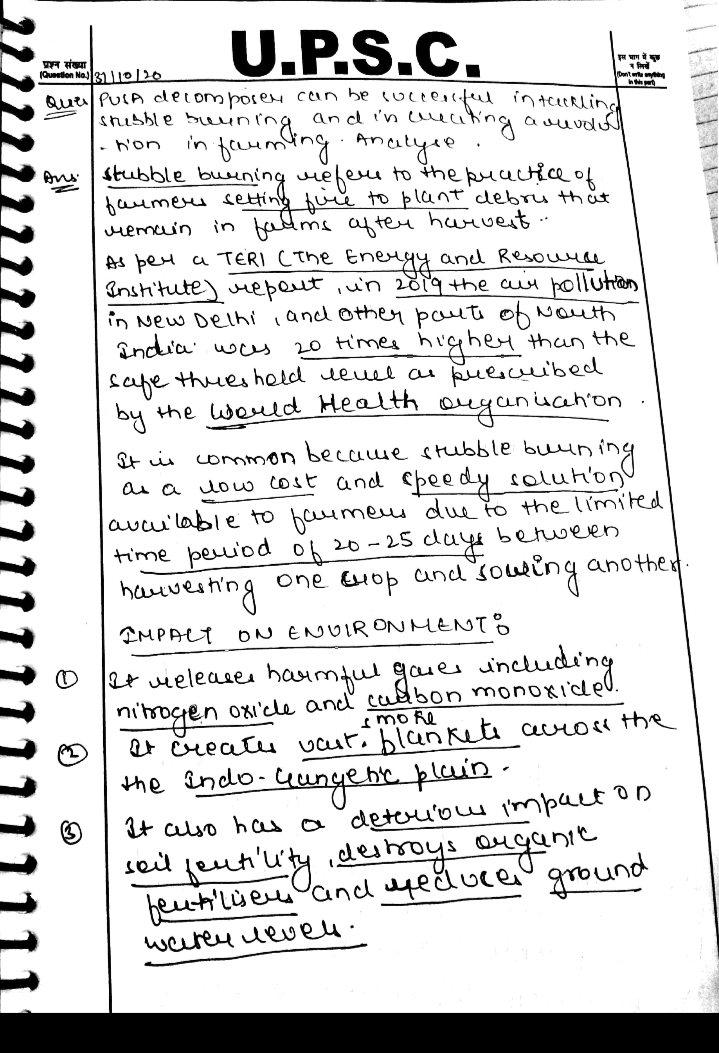 U.P.S.C.
प्रश्न संख्या
(Question No.)
31/10/20
इस भाग में कुछ
न लिखें
(Don't write anything
in this part)
Ques PUSA decomposer can be successful in tackling
stubble burning and in creating a revolu
-tion in farming. Analyse.
Ans: stubble burning refers to the practice of
farmers setting fire to plant debris that
remain in farms after harvest..
As per a TERI (The Energy and Resource
Institute) report, in 2019 the air pollution
in New Delhi, and other parts of North
India was 20 times higher than the
safe threshold level as prescribed
by the World Health organisation.
It is common because stubble burning
as a low cost and speedy solution
available to farmers due to the limited
time period of 20-25 days between
harvesting one crop and sowing another.
IMPACT ON ENVIRONMENT:
① It releases harmful gases including
nitrogen oxide and carbon monoxide.
② It creates vast smoke blankets across the
the Indo-Gangetic plain.
③ It also has a deterious impact on
soil fertility, destroys organic
fertilisers and reduces ground
water levels.